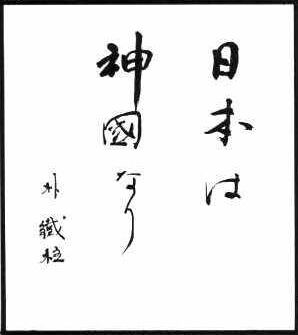 日本は
神國なり
朴鐵柱